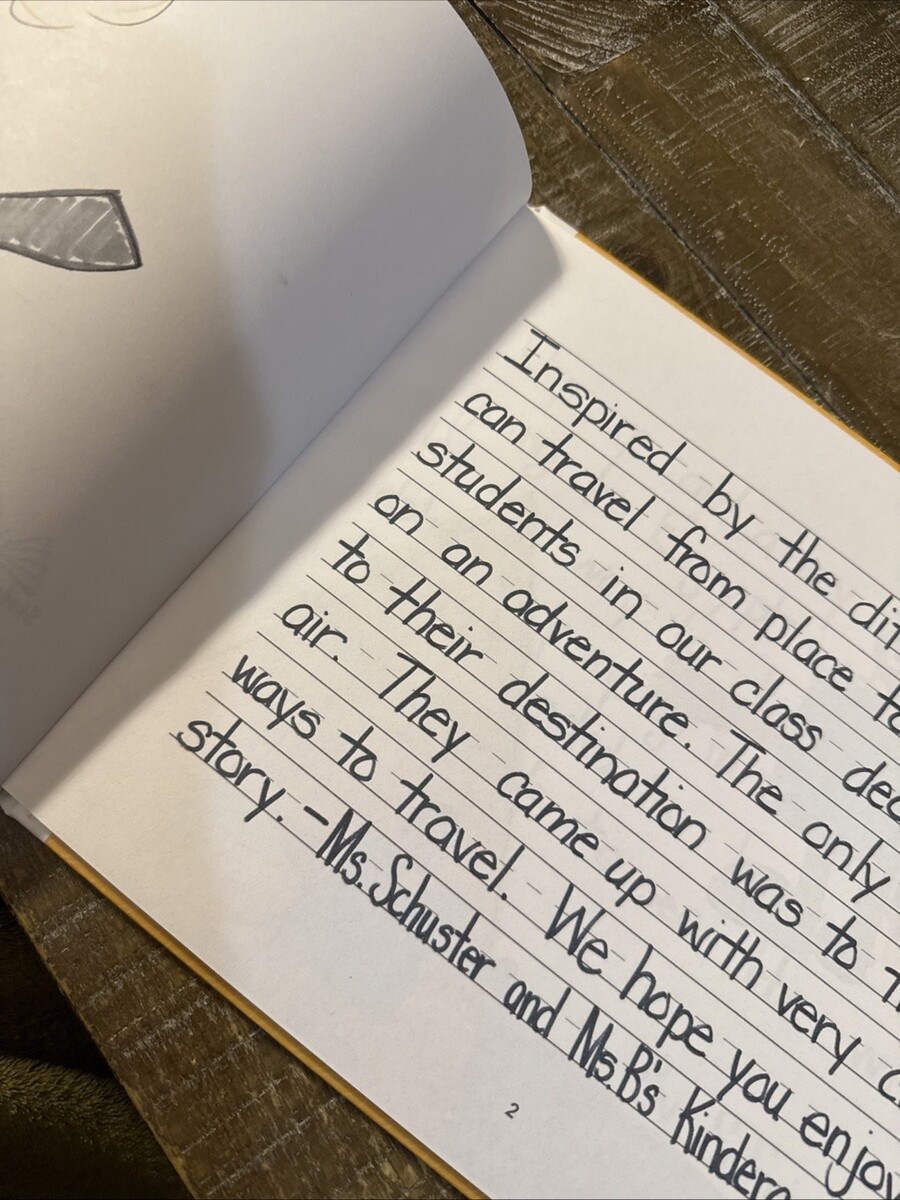 Inspired by the
can travel from place
students in our class
on an adventure. The only
to their destination was to
air. They came up with very
ways to travel. We hope you enjoy
story. -Ms. Schuster and Ms. B's
2